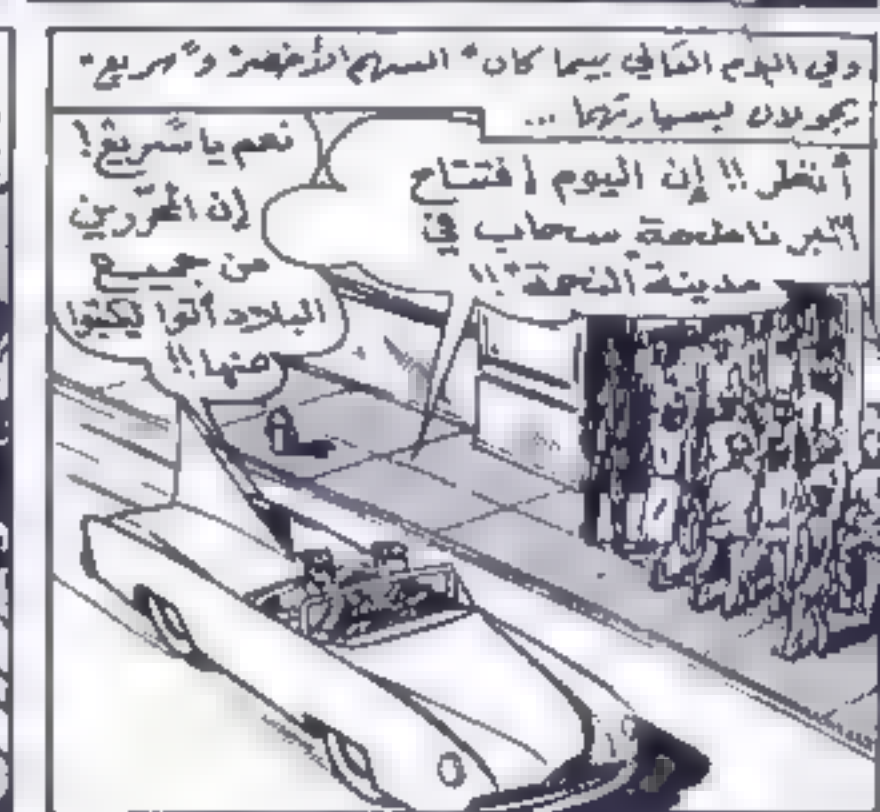 وفي اليوم التالي بينما كان "السهم الأخضر" و"سريع"
يجولان بسيارتهما ...
أنظر !! إن اليوم افتتاح
اكبر ناطحة سحاب في
مدينة "النجمة" !!
نعم يا سريع !
إن المحررين
من جميع
البلاد أتوا ليكتبوا
عنها !!